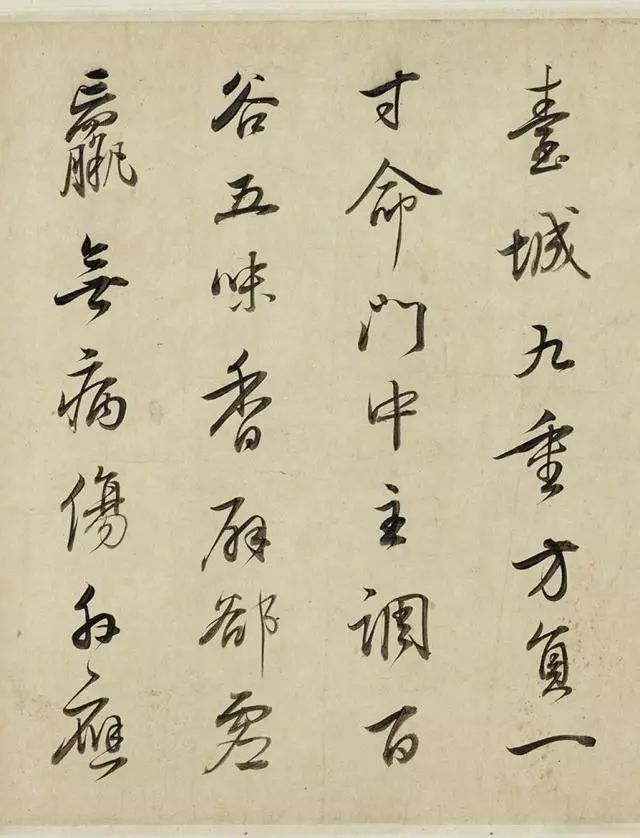 臺城九重方員一
寸命門中主調百
谷五味香辟郤虛
羸無病傷外應